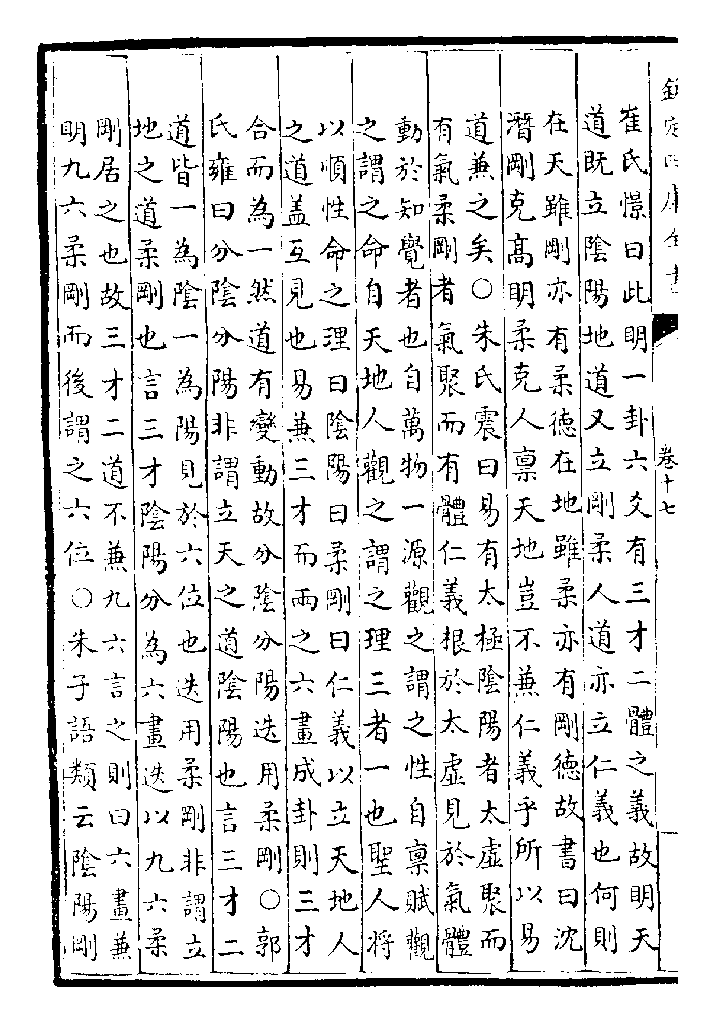 欽定四庫全書
卷十七
崔氏憬曰此明一卦六爻有三才二體之義故明天
道既立陰陽地道又立剛柔人道亦立仁義也何則
在天雖剛亦有柔德在地雖柔亦有剛德故書曰沈
潛剛克髙明柔克人禀天地豈不兼仁義乎所以易
道兼之矣○朱氏震曰易有太極陰陽者太虛聚而
有氣柔剛者氣聚而有體仁義根於太虛見於氣體
動於知覺者也自萬物一源觀之謂之性自禀賦觀
之謂之命自天地人觀之謂之理三者一也聖人將
以順性命之理曰陰陽曰柔剛曰仁義以立天地人
之道盖互見也易兼三才而兩之六畫成卦則三才
合而為一然道有變動故分陰分陽迭用柔剛○郭
氏雍曰分陰分陽非謂立天之道陰陽也言三才二
道皆一為陰一為陽見於六位也迭用柔剛非謂立
地之道柔剛也言三才陰陽分為六畫迭以九六柔
剛居之也故三才二道不兼九六言之則曰六畫兼
明九六柔剛而後謂之六位○朱子語類云陰陽剛